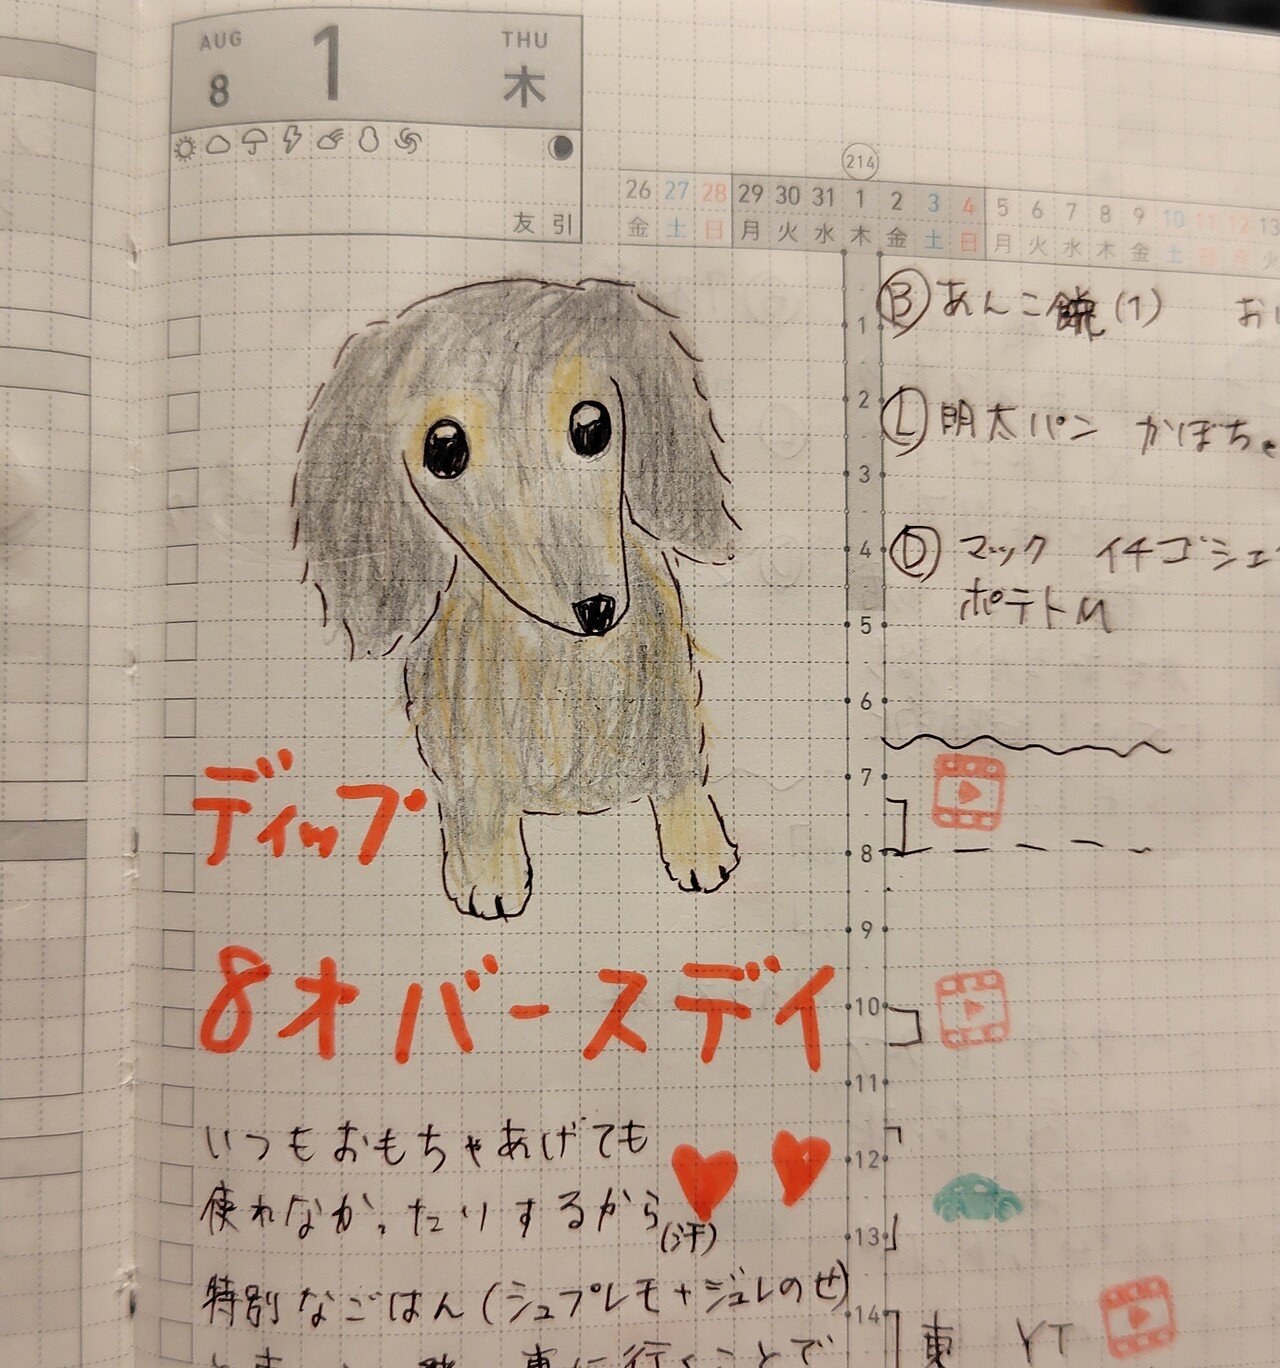 AUG 1 THU
8 木
友引
214
26 27 28 29 30 31 1 2 3 4 5 6 7 8 9 10 11 12 13
金 土 日 月 火 水 木 金 土 日 月 火 水 木 金 土 日 月 火
Ⓑ あんこ餅(1) お
Ⓛ 明太パン かぼち
Ⓓ マック イチゴシェ
ポテトM
1
2
3
4
5
6
7
8
9
10
11
12
13
14
ディップ
8オバースデイ
いつもおもちゃあげても
使れなかったりするから
(汗)
特別なごはん(シュプレモ+ジュレのせ)
東 YT
に行くことで